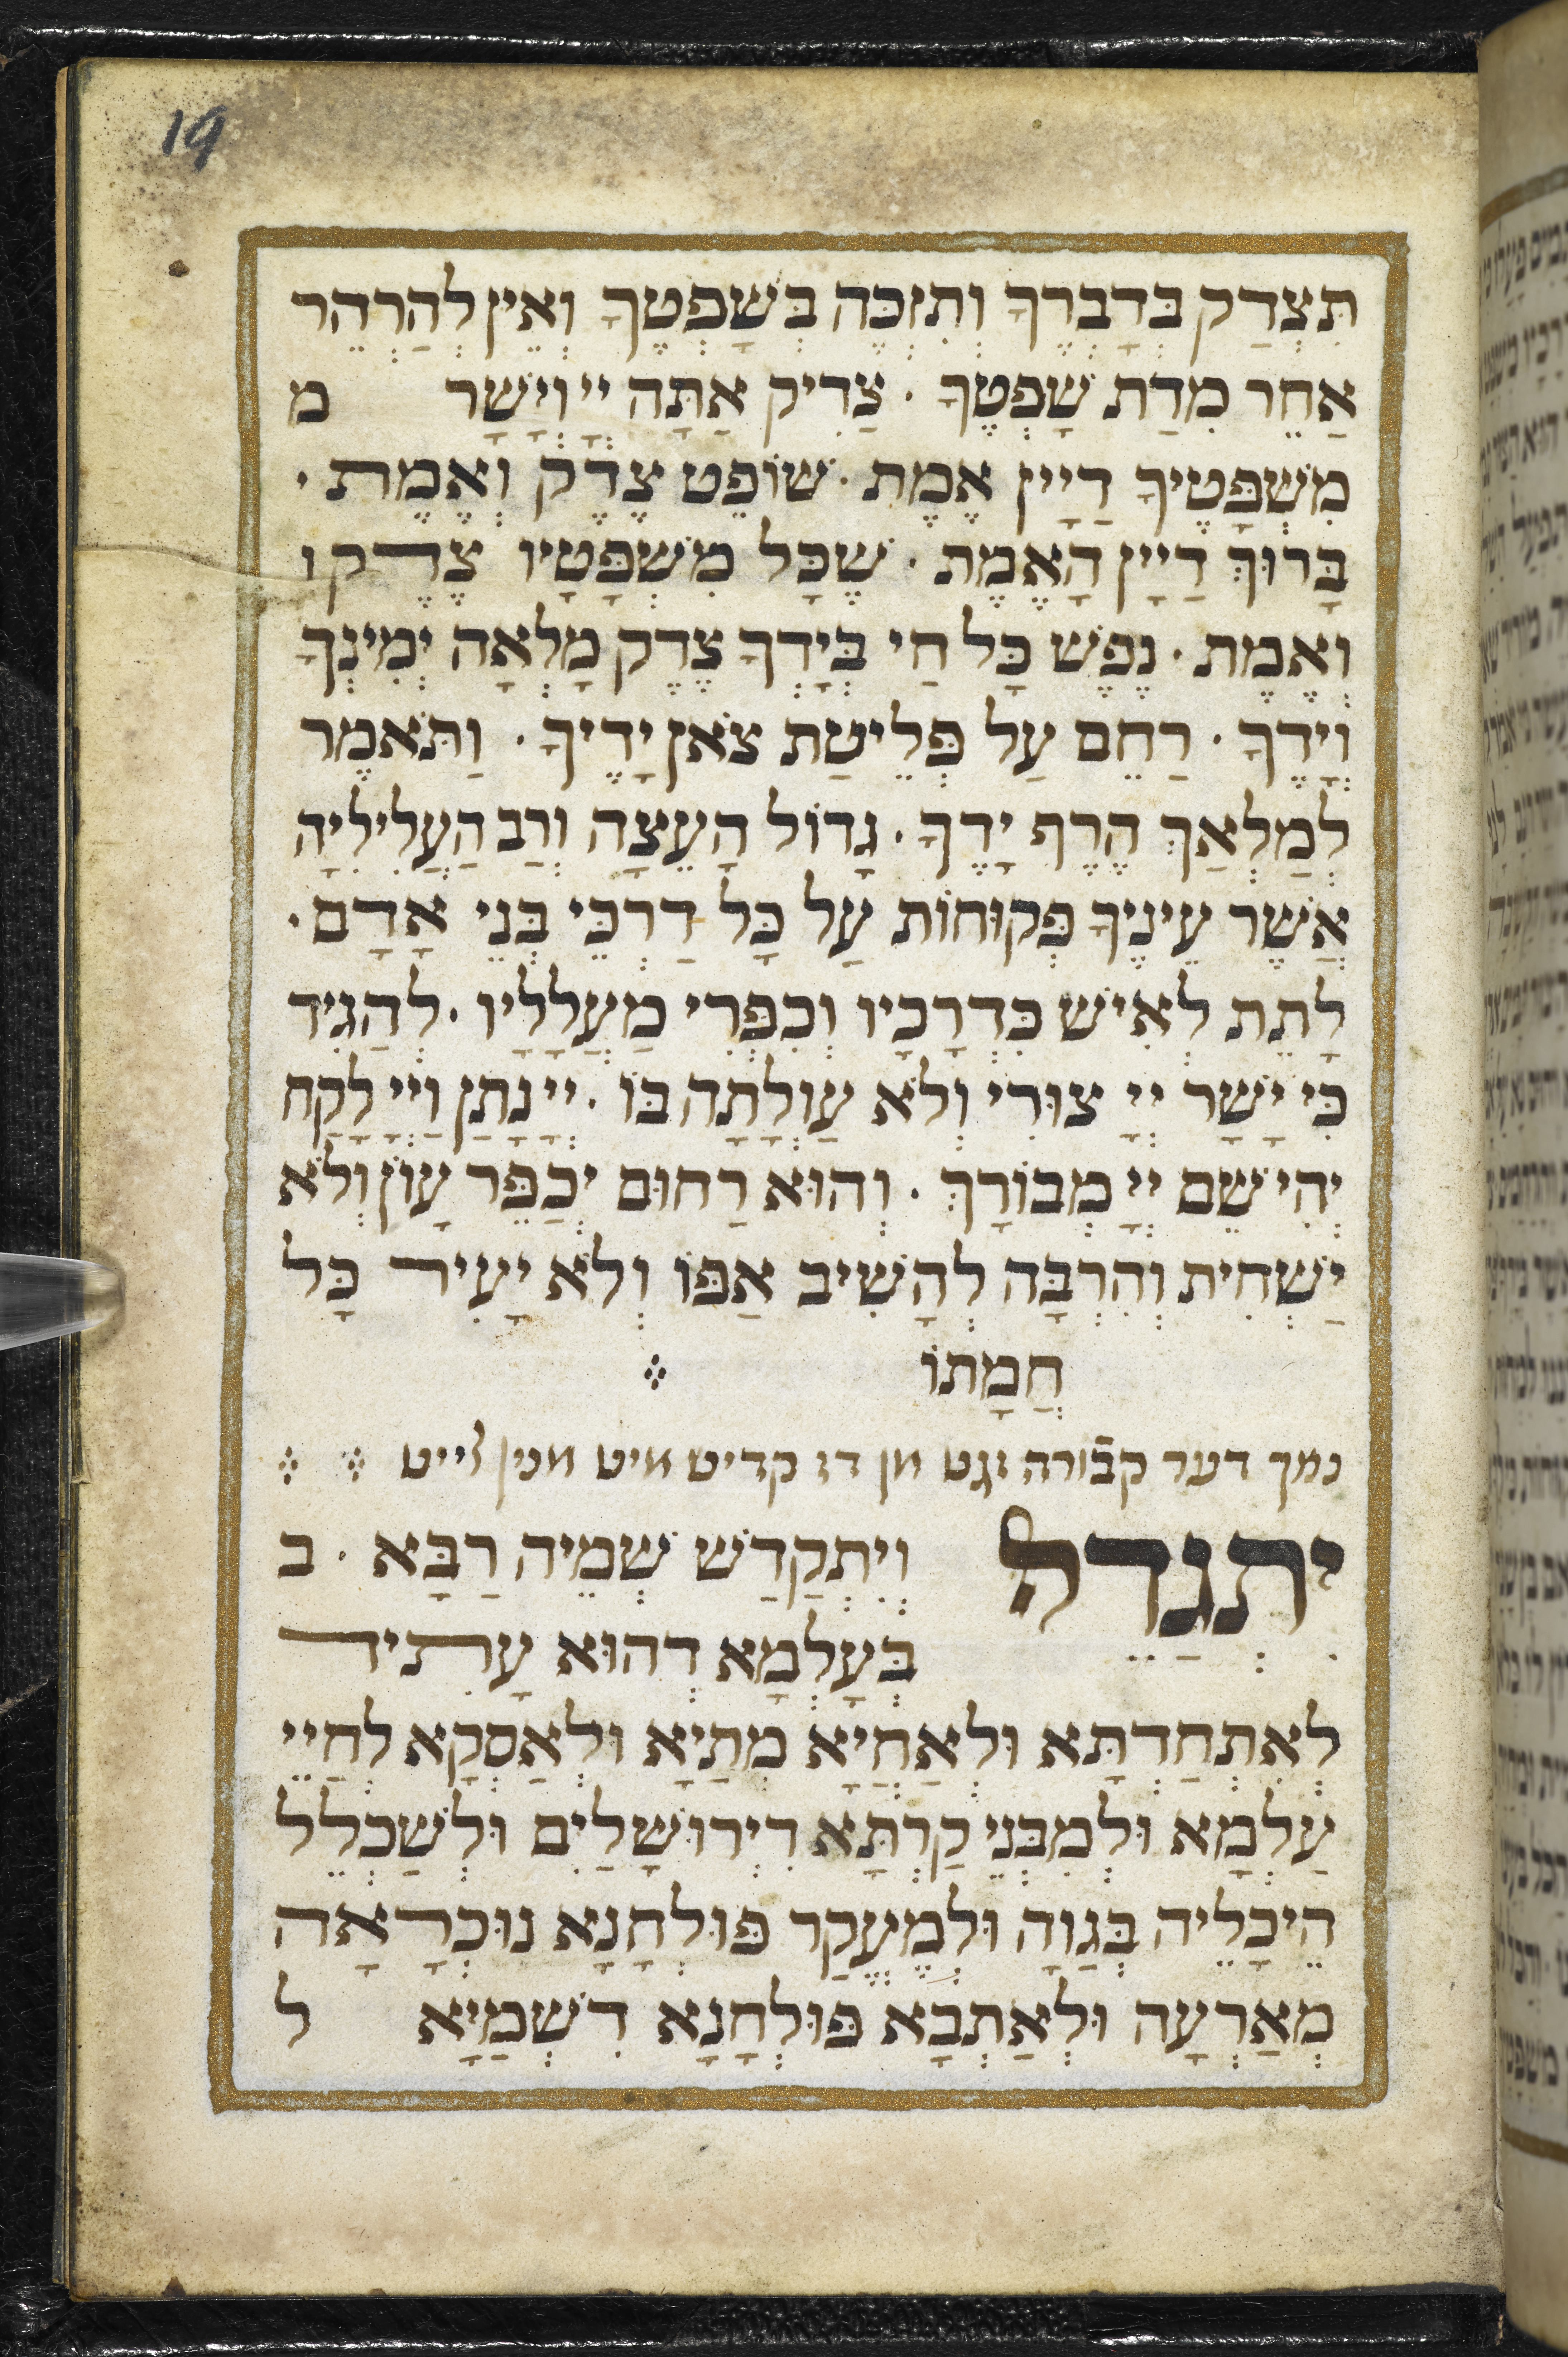 19
תִּצְדַק בְּדָבְרֶךָ וְתִזְכֶּה בְּשָׁפְטֶךָ וְאֵין לְהַרְהֵר
אַחֵר מִדַת שָׁפְטֶךָ · צַדִיק אַתָּה יְיָ וְיָשָׁר מ
מִשְׁפָּטֶיךָ דַיָין אֶמֶת · שׁוֹפֵט צֶדֶק וְאֶמֶת ·
בָּרוּךְ דַיָין הָאֶמֶת · שֶׁכָּל מִשְׁפָּטָיו צֶדֶק ו
וְאֶמֶת · נֶפֶשׁ כָּל חַי בְּיָדְךָ צֶדֶק מָלְאָה יְמִינְךָ
וְיָדֶךָ · רַחֵם עַל פְּלֵיטַת צֹאן יָדֶיךָ · וַתֹּאמֶר
לְמַלְאַךְ הֶרֶף יָדֶךָ · גָדוֹל הָעֵצָה וְרַב הַעֲלִילִיָה
אֲשֶׁר עֵינֶיךָ פְּקוּחוֹת עַל כָּל דַרְכֵּי בְּנֵי אָדָם ·
לָתֵת לְאִישׁ כִּדְרָכָיו וְכִפְּרִי מַעֲלָלָיו · לְהַגִיד
כִּי יָשָׁר יְיָ צוּרִי וְלֹא עַוְלָתָה בּוֹ · יְיָ נָתַן וַיְיָ לָקַח
יְהִי שֵׁם יְיָ מְבוֹרָךְ · וְהוּא רַחוּם יְכַפֵּר עָוֹן וְלֹא
יַשְׁחִית וְהִרְבָּה לְהָשִׁיב אַפּוֹ וְלֹא יָעִיר כָּל
חֲמָתוֹ
נמך דער קבֿורה זגט מן דז קדיש מיט מנין לייט
יִתְגַדֵל וְיִתְקַדַשׁ שְׁמֵיה רַבָּא · ב
בְּעָלְמָא דְהוּא עָתִיד
לְאִתְחַדְתָּא וּלְאַחֲיָא מְתַיָא וּלְאַסְקָא לְחַיֵי
עַלְמָא וּלְמִבְּנֵי קַרְתָּא דִירוּשָׁלַיִם וּלְשַׁכְלֵל
הֵיכָלֵיה בְּגַוָה וּלְמֶעֱקַר פּוּלְחָנָא נוּכְרָאָה
מְאַרְעָה וּלְאַתְבָא פּוּלְחָנָא דִשְׁמַיָא ל